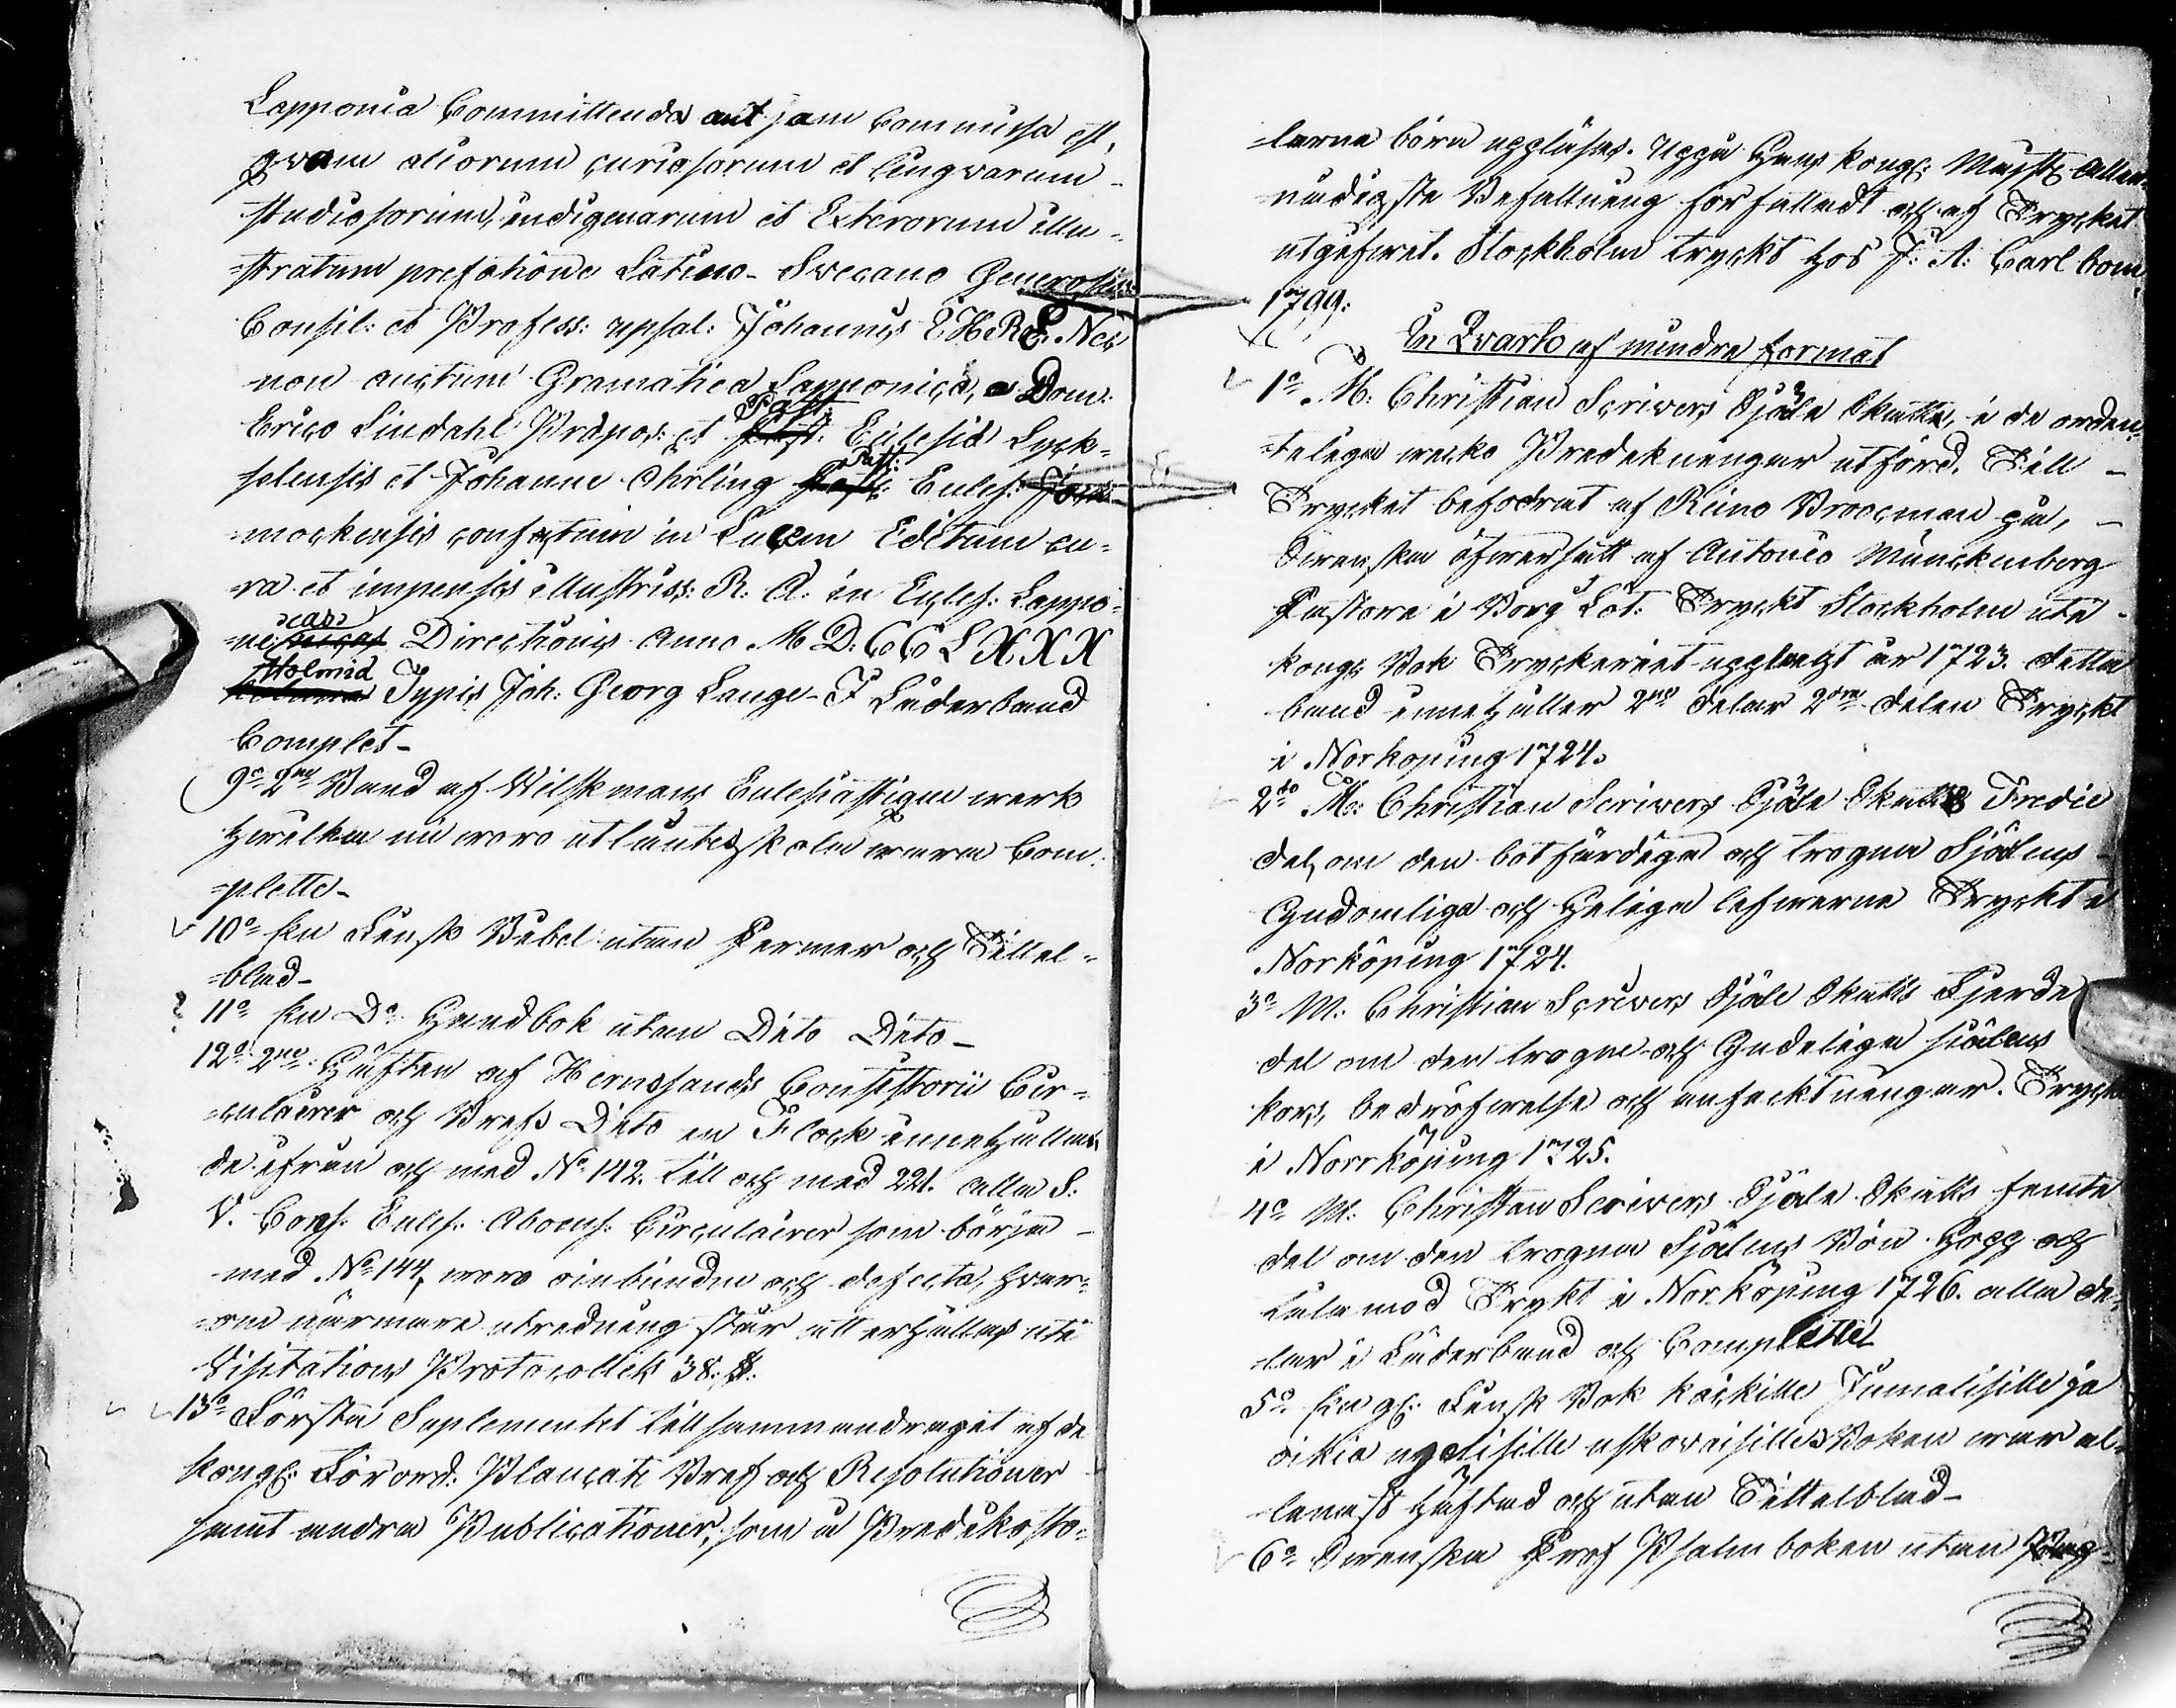 Lapponia Committenda aut jam Commissa est,
qvam aliorum curiosorum et lingvarum
studiosorum, indigenarum et Exterorum illu-
=stratum prefatione Latino-Svecana Generosiss:
Consil: et Profess: upsal: Johannis IHRE. Nec
non auctum Gramatica Lapponica, a Dom:
Erico Lindahl Præpos: et Past: Eclesiæ Lyck-
selensis et Johanne Öhrling Past: Ecles: Jock-
=mockensis confectum in Lucem Editum cu-
ra et impensis illustriss: R. A. in Eccles: Lappo-
nicas Directionis Anno M D: CC LXXX
Holmiæ Typis Joh: Georg Lange - I Läderband
Complet -
9o 2ne Band af Wilskmans Eclesiastique werk
hwilka nu woro utlånte, skola wara Com-
=plette -
10o En Finsk Bibel utan Permar och Tittel-
=blad -
11o En Do Handbok utan Dito Dito -
12o 2ne Häften af Hernosands Consistorii Cir-
=culairer och Bref Dito en Flock innehållan-
de ifrån och med No 142. till och med 221. alla S:
V. Cons: Ecles: Aboens: Circulairer som börja
med No 144, woro oinbundne och defecta, hwar-
=om närmare utredning står att erhållas uti
Visitations Protocollets 38: §:
13o Första Suplementet till sammandraget af de
Kongl: Förord: Placater Bref och Resolutioner
samt andra Publicationer, som å Predikosto-
=larne böra uppläsas. Uppå Hans Kongl: Majts Aller-
nådigste Befallning författadt och af Trycket
utgifwet. Stockholm tryckt hos J: A: Carlbom
1799:
In Quarto af mindre format
1o M: Christian Scrivers Själa Skatt, i de orden-
=teliga wecko Predikningar utförd. Till
Trycket befodrat af Reino Broocman på,
Swenska öfwersatt af Antonio Münchenberg
Pastore i Borg Löt: Tryckt Stockholm uti
kongl Bok Tryckeriet upplagt år 1723. detta
band innehåller 2ne delar 2dra delen Tryckt
i Norkoping 1724.
2do M: Christian Scrivers Själa Skatts Tredie
del, om den botfärdiga och trogna Själens
Gudomliga och Heliga lefwerne Tryckt i
Norköping 1724.
3o M. Christian Scrivers Själa Skatts Fjerde
del om den trogne och Gudeliga själens
kors, bedröfwelse och anfecktningar. Tryckt
i Norrköping 1725.
4o M. Christian Scrivers Själa Skatts femte
del om den trogna Själens Bön Hopp och
tålamod Trykt i Norköping 1726. alla de-
lar i Läderband och Complette
5o En gl: Finsk Bok kaickille Jumalisille ja
oikia uskovaisille Boken war al-
lenast häftad och utan Tittelblad -
6o Swenska Prof Psalmboken utan